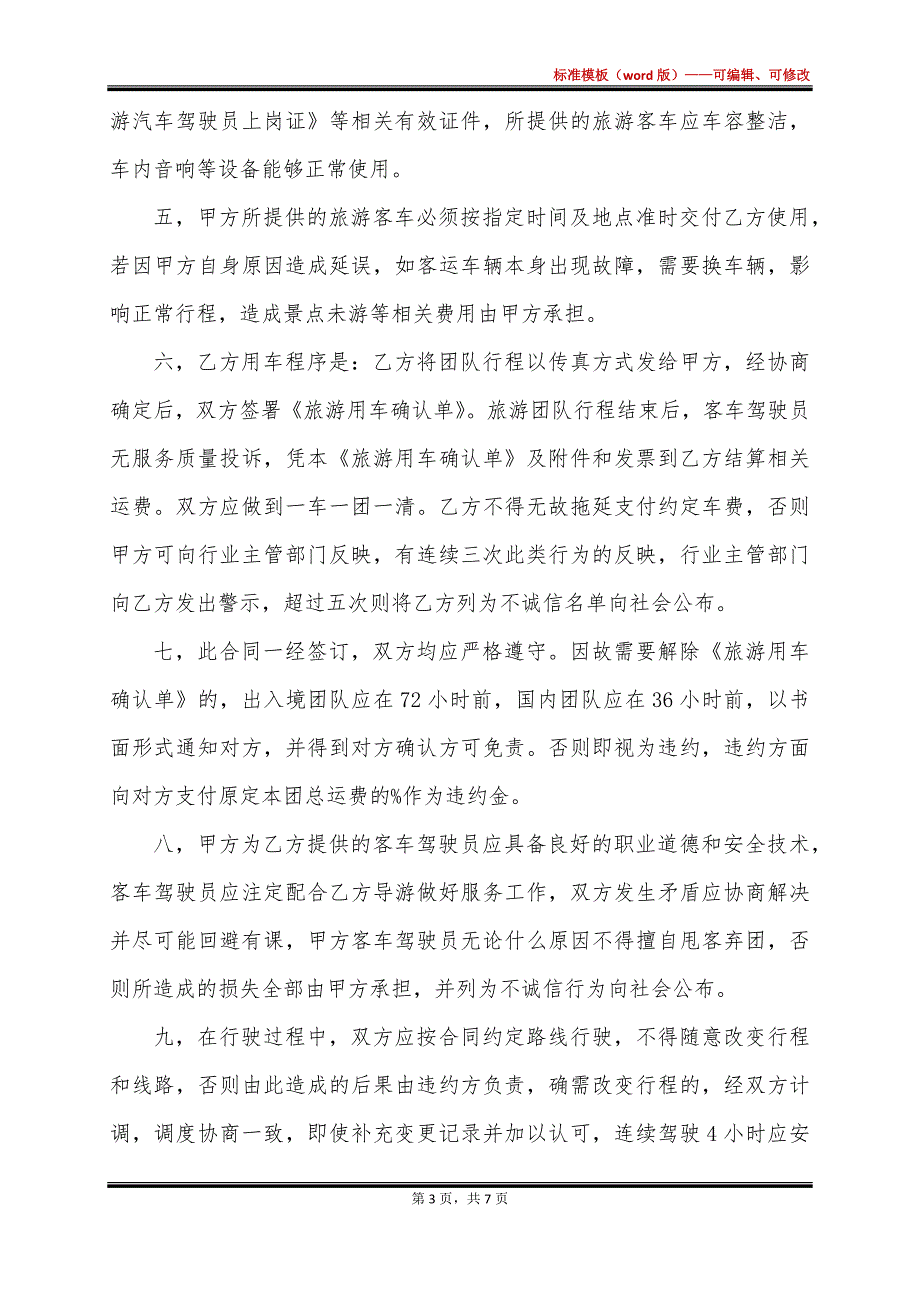 标准模板（word 版）——可编辑、可修改
游汽车驾驶员上岗证》等相关有效证件，所提供的旅游客车应车容整洁，
车内音响等设备能够正常使用。
五，甲方所提供的旅游客车必须按指定时间及地点准时交付乙方使用，
若因甲方自身原因造成延误，如客运车辆本身出现故障，需要换车辆，影
响正常行程，造成景点未游等相关费用由甲方承担。
六，乙方用车程序是：乙方将团队行程以传真方式发给甲方，经协商
确定后，双方签署《旅游用车确认单》。旅游团队行程结束后，客车驾驶员
无服务质量投诉，凭本《旅游用车确认单》及附件和发票到乙方结算相关
运费。双方应做到一车一团一清。乙方不得无故拖延支付约定车费，否则
甲方可向行业主管部门反映，有连续三次此类行为的反映，行业主管部门
向乙方发出警示，超过五次则将乙方列为不诚信名单向社会公布。
七，此合同一经签订，双方均应严格遵守。因故需要解除《旅游用车
确认单》的，出入境团队应在 72 小时前，国内团队应在 36 小时前，以书
面形式通知对方，并得到对方确认方可免责。否则即视为违约，违约方面
向对方支付原定本团总运费的%作为违约金。
八，甲方为乙方提供的客车驾驶员应具备良好的职业道德和安全技术，
客车驾驶员应注定配合乙方导游做好服务工作，双方发生矛盾应协商解决
并尽可能回避有课，甲方客车驾驶员无论什么原因不得擅自甩客弃团，否
则所造成的损失全部由甲方承担，并列为不诚信行为向社会公布。
九，在行驶过程中，双方应按合同约定路线行驶，不得随意改变行程
和线路，否则由此造成的后果由违约方负责，确需改变行程的，经双方计
调，调度协商一致，即使补充变更记录并加以认可，连续驾驶 4 小时应安
第 3 页，共 7 页